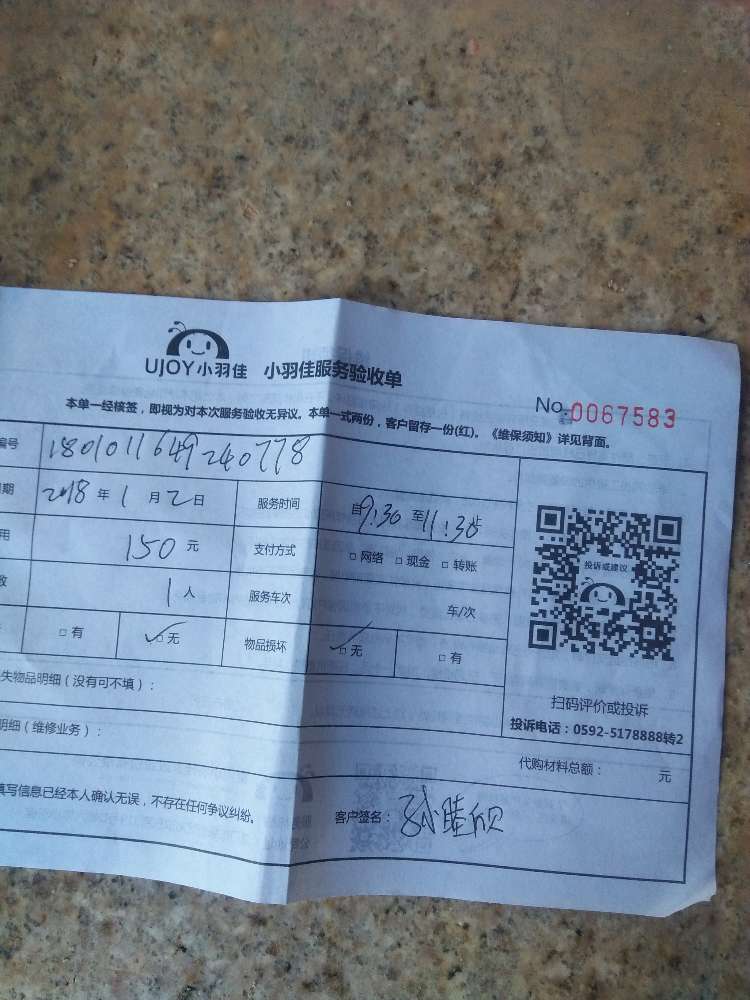 UJOY小羽佳 小羽佳服务验收单
No. 0067583
本单一经核签，即视为对本次服务验收无异议。本单一式两份，客户留存一份(红)。《维保须知》详见背面。
编号 1801011649240778
期 2018 年 1 月 2 日 服务时间 自9:30 至11:30
用 150 元 支付方式 □ 网络 □ 现金 □ 转账
数 1 人 服务车次 车/次
□ 有 □ 无 物品损坏 □ 无 □ 有
投诉或建议
扫码评价或投诉
投诉电话：0592-5178888转2
失物品明细（没有可不填）：
明细（维修业务）： 代购材料总额： 元
填写信息已经本人确认无误，不存在任何争议纠纷。 客户签名：